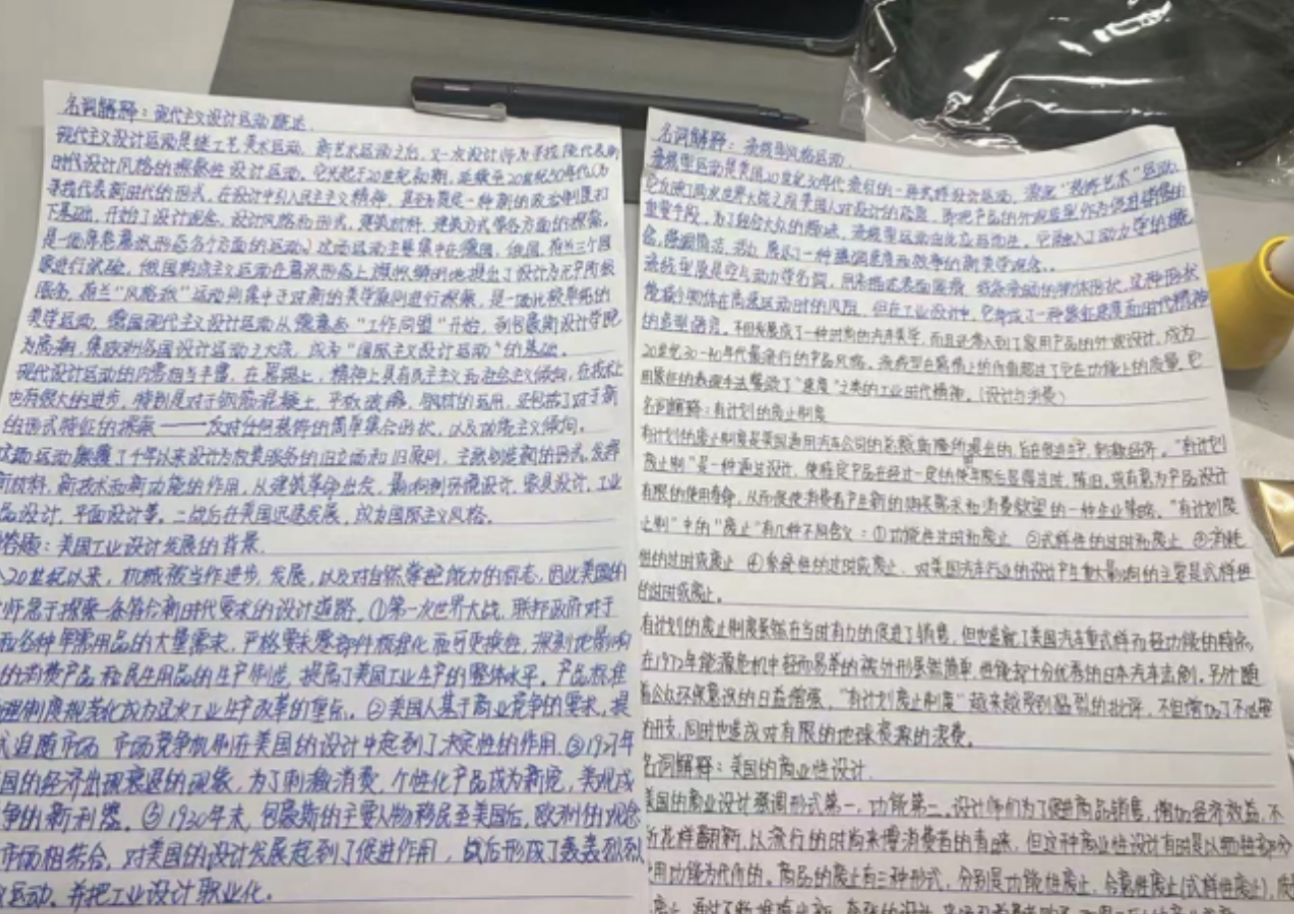 名词解释：现代主义设计运动概述.
现代主义设计运动是继工艺美术运动、新艺术运动之后，又一次设计师为寻找能代表新
时代设计风格的探索性设计运动。它兴起于20世纪初期，延续至20世纪50年代(为
寻找代表新时代的形式，在设计中引入民主主义精神，甚至为奠定一种新的政治制度打
下基础，开始了设计观念、设计风格和形式、建筑材料、建筑方式等各方面的探索。
是一场席卷意识形态各个方面的运动)这场运动主要集中在德国、俄国、荷兰三个国
家进行试验，俄国构成主义运动在意识形态上旗帜鲜明地提出了设计为无产阶级
服务，荷兰“风格派”运动则集中于对新的美学原则进行探索，是一场比较单纯的
美学运动，德国现代主义设计运动从“工作同盟”开始，到包豪斯设计学院
为高潮，集欧洲各国设计运动之大成，成为“国际主义设计运动”的基础。
现代设计运动的内容相当丰富，在思想上、精神上具有民主主义和社会主义倾向，在技术上
也有很大的进步，特别是对于钢筋混凝土、平板玻璃、钢材的运用，还包括了对于新
的形式特征的探索——反对任何装饰的简单集合形状，以及功能主义倾向。
这场运动颠覆了千年以来设计为权贵服务的旧立场和旧原则，主张创造新的形式，发挥
新材料、新技术和新功能的作用，从建筑革命出发，影响到环境设计、家具设计、工业
品设计、平面设计等。二战后在美国迅速发展，成为国际主义风格。
答题：美国工业设计发展的背景.
20世纪以来，机械被当作进步、发展、以及对自然掌控能力的标志，因此美国的
师急于探索一条符合新时代要求的设计道路。①第一次世界大战，联邦政府对于
各种军需用品的大量需求，严格要求零部件标准化和可更换性，深刻地影响
的消费产品和民生用品的生产制造，提高了美国工业生产的整体水平。产品标准
理制度规范化成为这次工业生产改革的重点。②美国人基于商业竞争的要求，提
追随市场，市场竞争机制在美国的设计中起到了决定性的作用.③1927年
国的经济出现衰退的现象，为了刺激消费，个性化产品成为新宠，美观成
争的新利器。⑤1930年末，包豪斯的主要人物移民至美国后，欧洲的观念
市场相结合，对美国的设计发展起到了促进作用，战后形成了轰轰烈烈
运动，并把工业设计职业化。
名词解释：流线型风格运动.
流线型运动是美国20世纪30年代流行的一种式样设计运动，源远“装饰艺术”运动，
它反映了两次世界大战之间美国人对设计的态度，即把产品的外观造型作为促进销售的
重要手段，为了迎合大众的趣味，流线型运动由此应运而生，它融入了动力学的概
念，强调简洁、活力，展示了一种强调速度和效率的新美学观念。
流线型原是空气动力学名词，用来描述表面圆滑、线条流动的物体形状，这种形状
能减少物体在高速运动时的风阻，但在工业设计中，它却成了一种象征速度和时代精神
的造型语言，不但发展成了一种时尚的汽车美学，而且还渗入到了家用产品的外观设计，成为
20世纪30-40年代最流行的产品风格。流线型在感情上的价值超过了它在功能上的质量，它
用象征的表现手法赞颂了“速度”之类的工业时代精神。(设计与消费)
名词解释：有计划的废止制度
有计划的废止制度是美国通用汽车公司的总裁斯隆所提出的，旨在促进生产，刺激经济。“有计划
废止制”是一种通过设计，使特定产品在经过一定的使年限后显得过时、陈旧，或有意为产品设计
有限的使用寿命，从而促使消费者产生新的购买需求和消费欲望的一种企业策略。“有计划废
止制”中的“废止”有几种不同含义：①功能性过时和废止 ②式样性的过时和废止 ③消耗
性的过时或废止 ④象征性的过时或废止。对美国汽车行业的设计产生重大影响的主要是式样性
的过时或废止。
有计划的废止制度虽然在当时有力的促进了销售，但也造就了美国汽车重式样而轻功能的特点，
在1972年能源危机中轻而易举的被外形虽然简单，性能却十分优秀的日本汽车击倒。另外随
着公众环保意识的日益增强，“有计划废止制度”越来越受到猛烈的批评，不但增加了不必要
的开支，同时也造成对有限的地球资源的浪费。
名词解释：美国的商业性设计.
美国的商业设计强调形式第一，功能第二。设计师们为了促进商品销售，增加经济效益，不
断花样翻新，以流行的时尚来博消费者的青睐，但这种商业性设计有时是以牺牲部分
用功能为代价的。商品的废止有三种形式，分别是功能性废止、合意性废止(式样性废止)、质